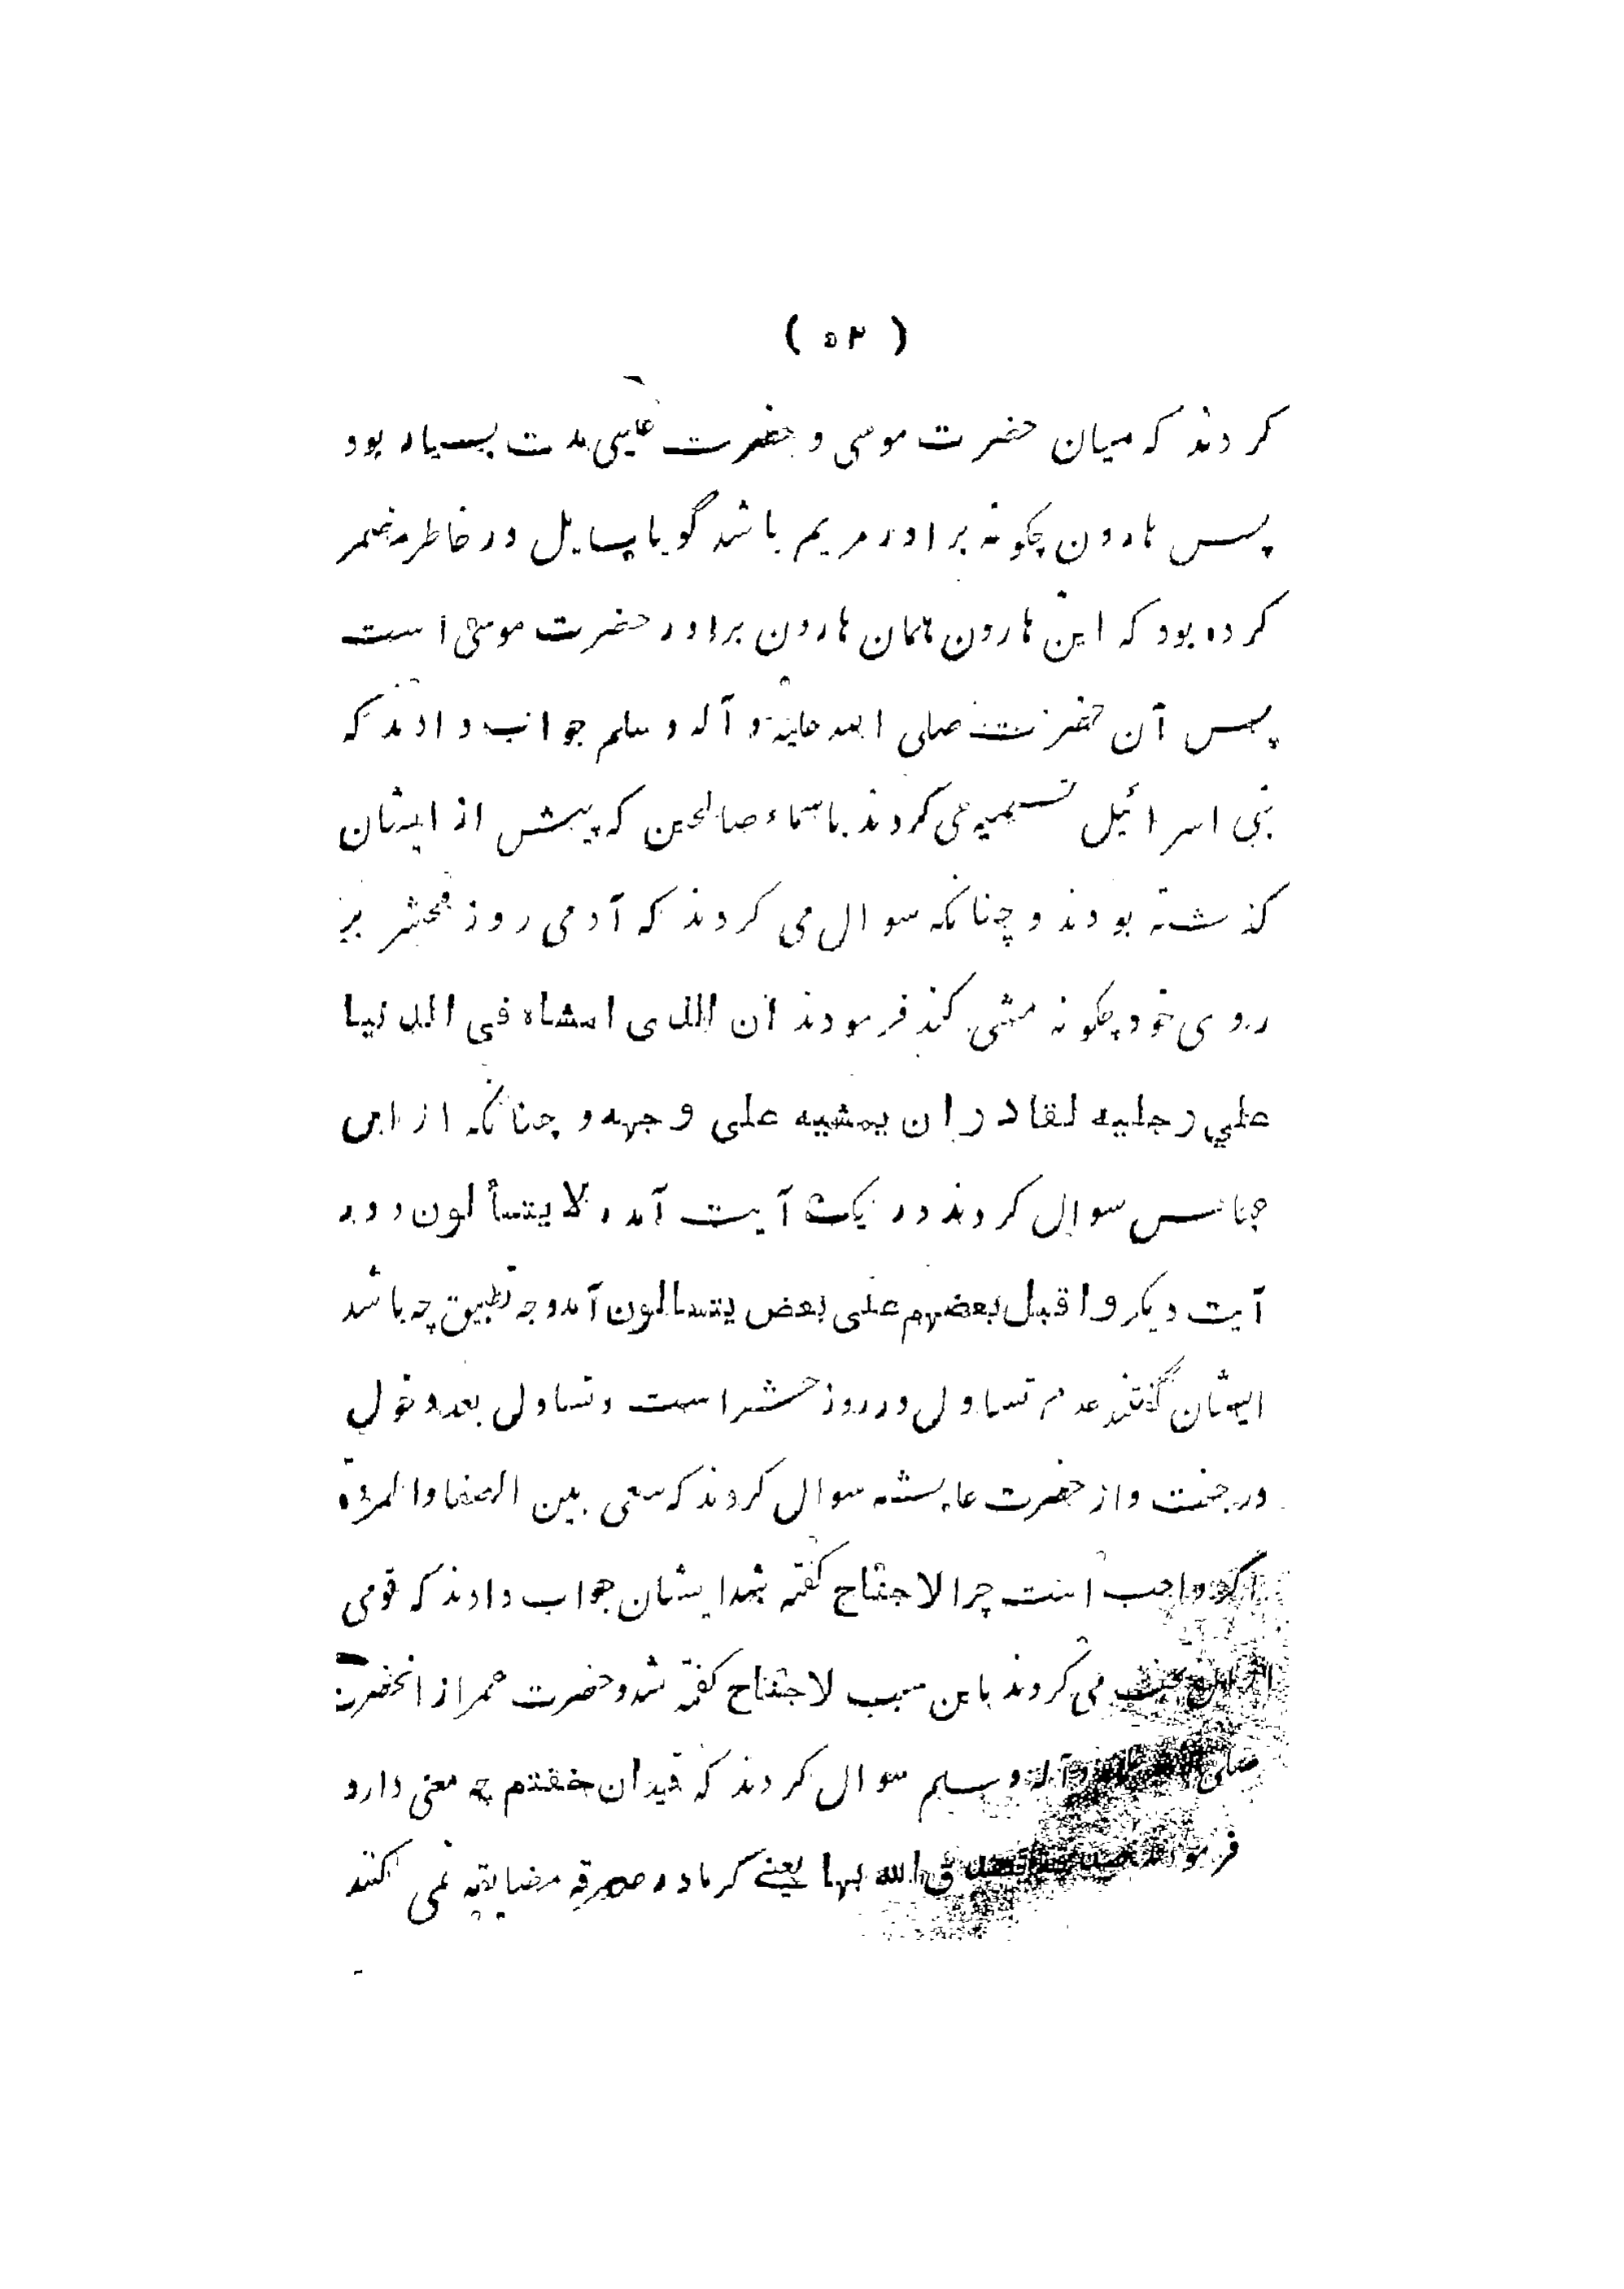 ( ۵۲ )
کردند که میان حضرت موسی و حضرت عیسی مدت بسیار بود
پس هارون چگونه برادر مریم باشد گویا سایل در خاطر مضمر
کرده بود که این هارون همان هارون برادر حضرت موسی است
پس آن حضرت صلی الله علیه و آله و سلم جواب دادند که
بنی اسرائیل تسمیه می کردند باسماء صالحین که پیش از ایشان
گذشته بودند و چنانکه سوال می کردند که آدمی روز محشر بر
روی خود چگونه مشی کند فرمودند ان الذی امشاه فی الدنیا
علي رجلیه لقادر ان یمشیه علی وجهه و چنانکه از ابن
عباس سوال کردند در یک آیت آمده لا یتسألون و در
آیت دیگر و اقبل بعضهم علی بعض یتسالون آمد وجه تطبیق چه باشد
ایشان گفتند عدم تساول در روز حشر است و تساول بعد دخول
در جنت و از حضرت عایشه سوال کردند که سعی بین الصفا و المروة
اگر واجب است چرا لا جناح گفته شد ایشان جواب دادند که قومی
می کردند باین سبب لا جناح گفته شد و حضرت عمر از انحضرت
صلی الله علیه و آله و سلم سوال کردند که قید ان خفتم چه معنی دارد
فرمودند الله بها یعنے کرما در صدقه مضایقه نمی کنند